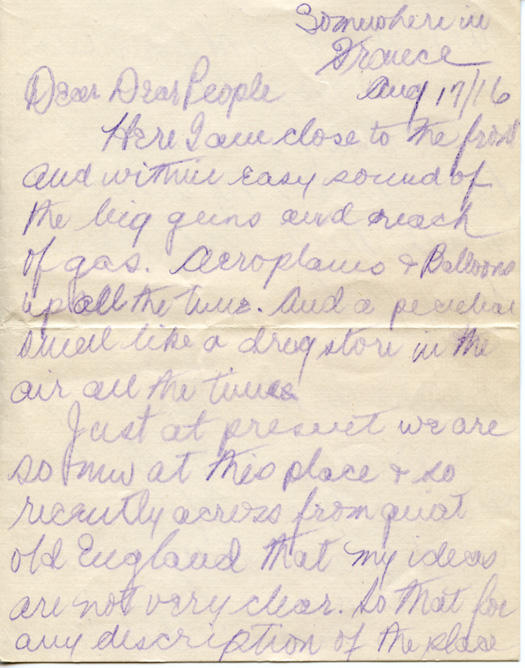 Somewhere in
France
Aug 17/16
Dear Dear People
Here I am close to the front
and within easy sound of
the big guns and reach
of gas. Aeroplanes & Balloons
up all the time. And a peculiar
smell like a drug store in the
air all the time
Just at present we are
so new at this place & so
recently across from quiet
old England that my ideas
are not very clear. So that for
any description of the place